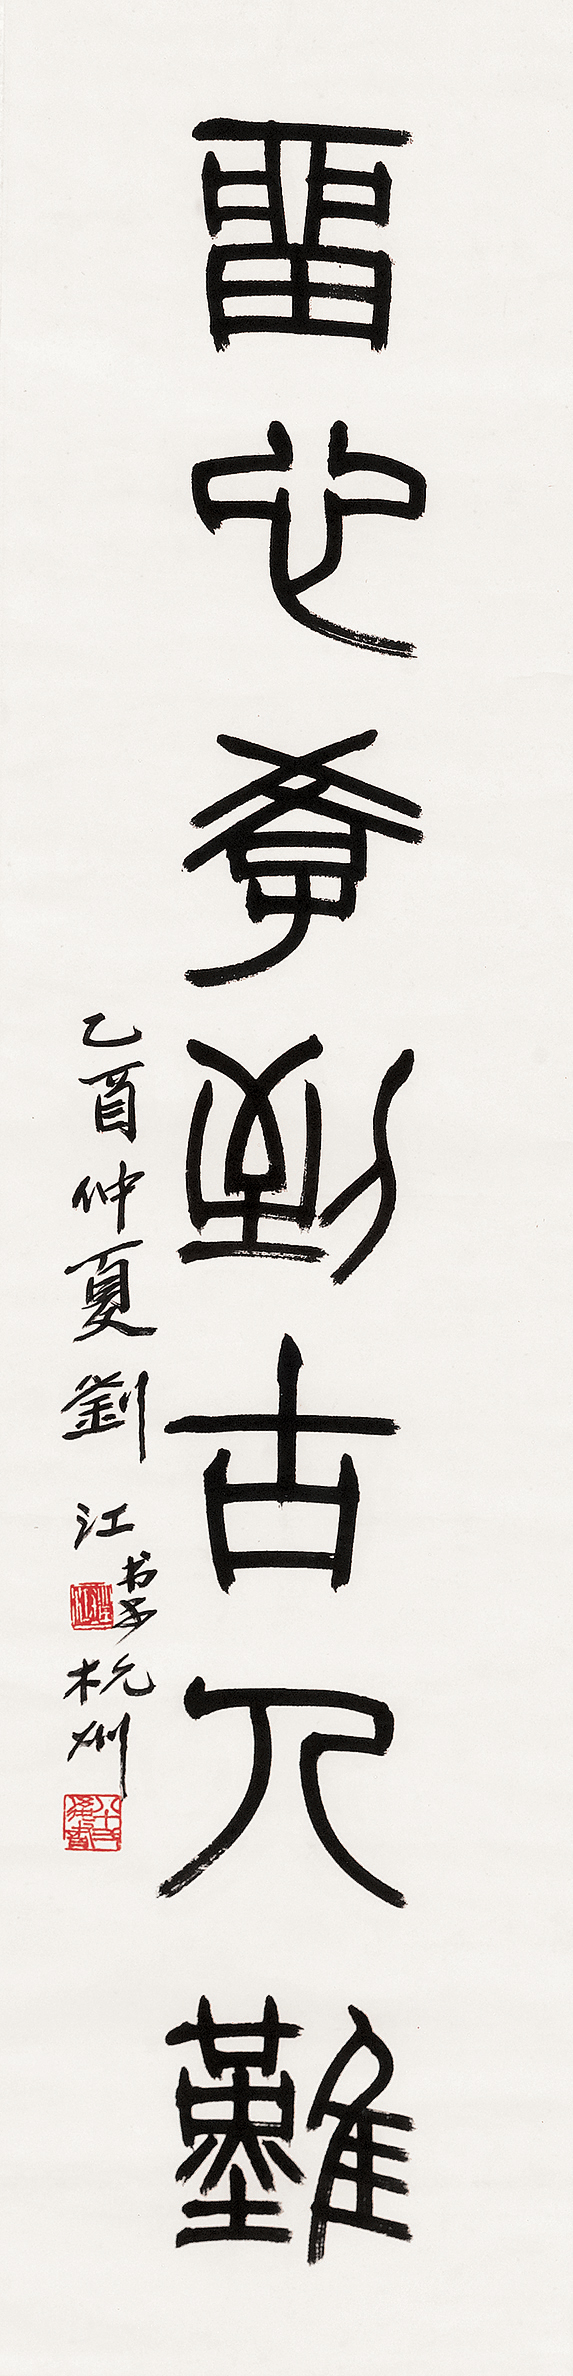 留心學到古人難
乙酉仲夏劉江書於杭州